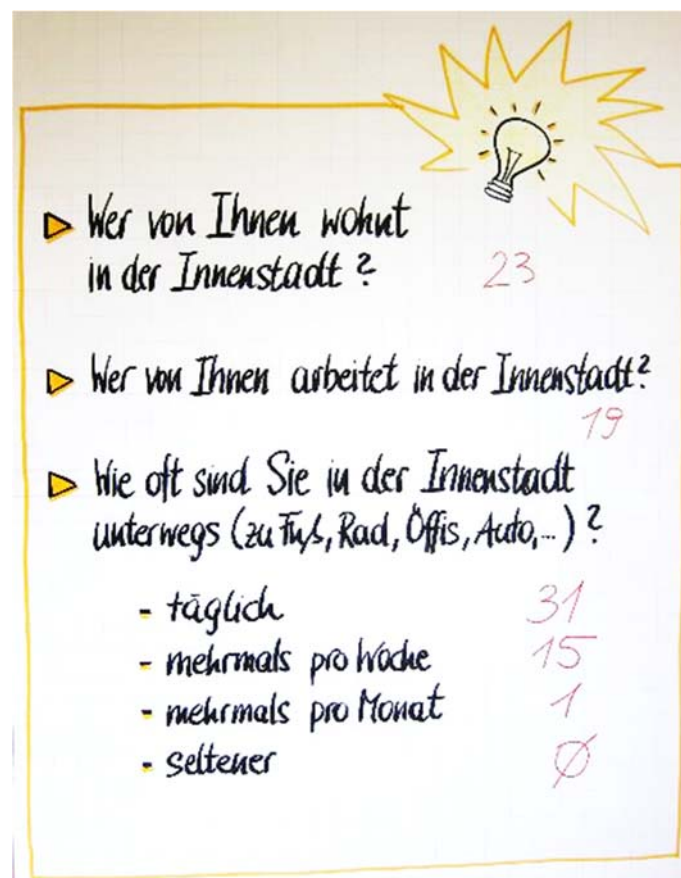 ▷ Wer von Ihnen wohnt
in der Innenstadt? 23
▷ Wer von Ihnen arbeitet in der Innenstadt?
19
▷ Wie oft sind Sie in der Innenstadt
unterwegs (zu Fuß, Rad, Öffis, Auto,...)?
- täglich 31
- mehrmals pro Woche 15
- mehrmals pro Monat 1
- seltener Ø